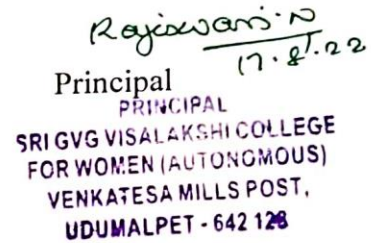 Rajeswari. N
17.8.22
Principal
PRINCIPAL
SRI GVG VISALAKSHI COLLEGE
FOR WOMEN (AUTONOMOUS)
VENKATESA MILLS POST,
UDUMALPET - 642 128